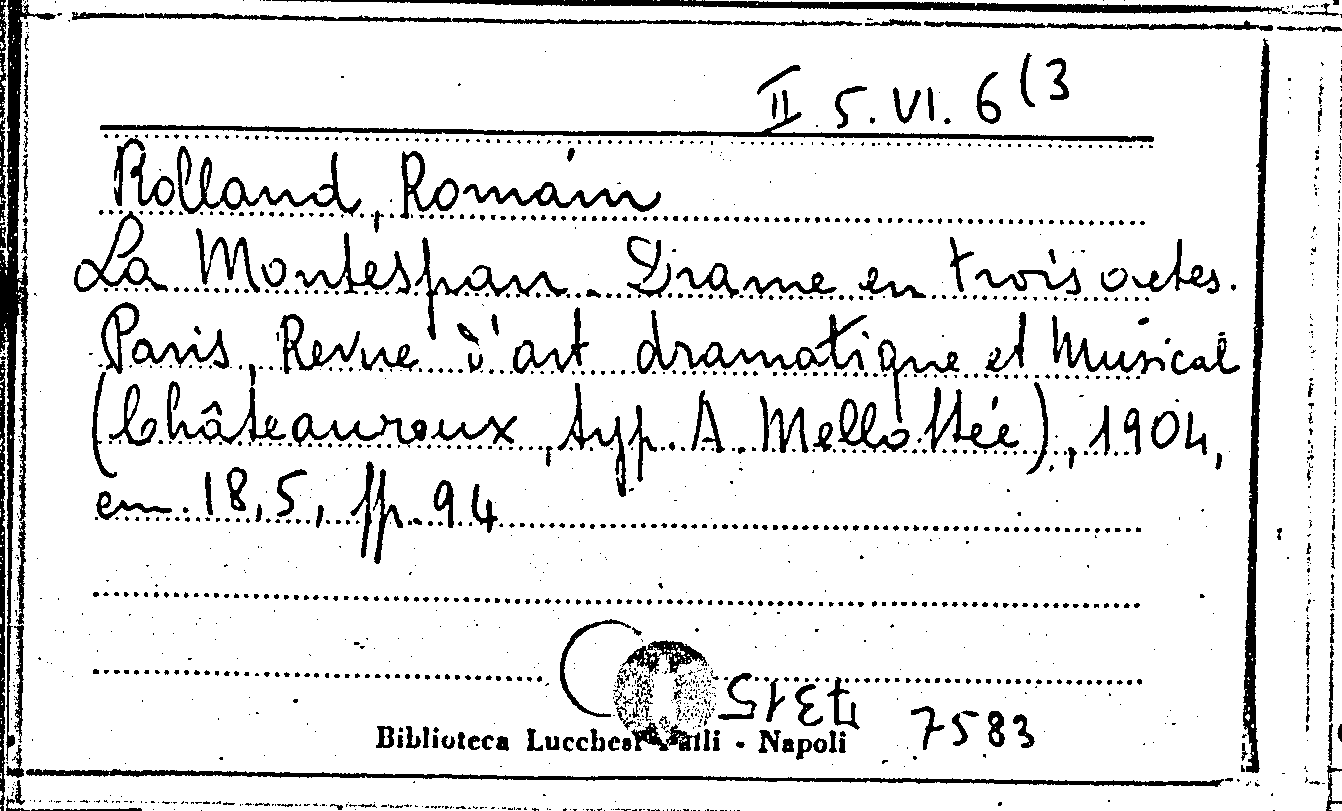 II 5. VI. 6 (3
Rolland, Romain
La Montespan. Drame en trois actes.
Paris, Revue d'art dramatique et Musical
(Châteauroux, typ. A. Mellottée), 1904,
cm. 18,5, pp. 94
4315
7583
Biblioteca Lucchesi Palli - Napoli